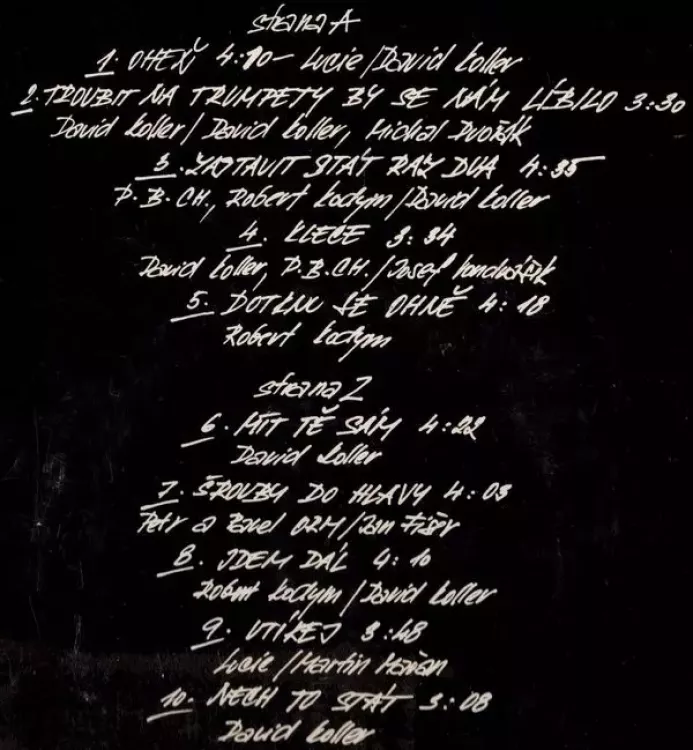 strana A
1. OHEŇ 4:10 - Lucie/David Koller
2. TROUBIT NA TRUMPETY BY SE NÁM LÍBILO 3:30
David Koller/David Koller, Michal Dvořák
3. ZASTAVIT STÁT RAZ DVA 4:35
P.B.CH., Robert Kodym/David Koller
4. KLECE 3:34
David Koller, P.B.CH./Josef Vondrášek
5. DOTKNU SE OHNĚ 4:18
Robert Kodym
strana Z
6. MÍT TĚ SÁM 4:22
David Koller
7. ŠROUBY DO HLAVY 4:03
Petr a Pavel ORM/Jan Fišer
8. JDEM DÁL 4:10
Robert Kodym/David Koller
9. UTÍKEJ 3:48
Lucie/Martin
10. NECH TO STÁT 3:08
David Koller